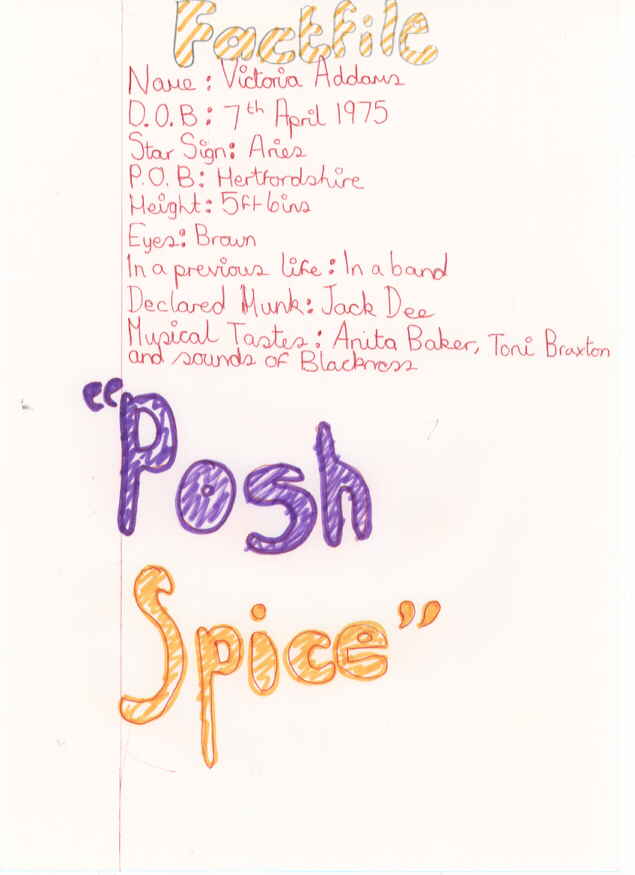 Factfile
Name: Victoria Addams
D.O.B: 7th April 1975
Star Sign: Aries
P.O.B: Hertfordshire
Height: 5ft 6ins
Eyes: Brown
In a previous life: In a band
Declared Hunk: Jack Dee
Musical Tastes: Anita Baker, Toni Braxton
and sounds of Blackness
"Posh
Spice"